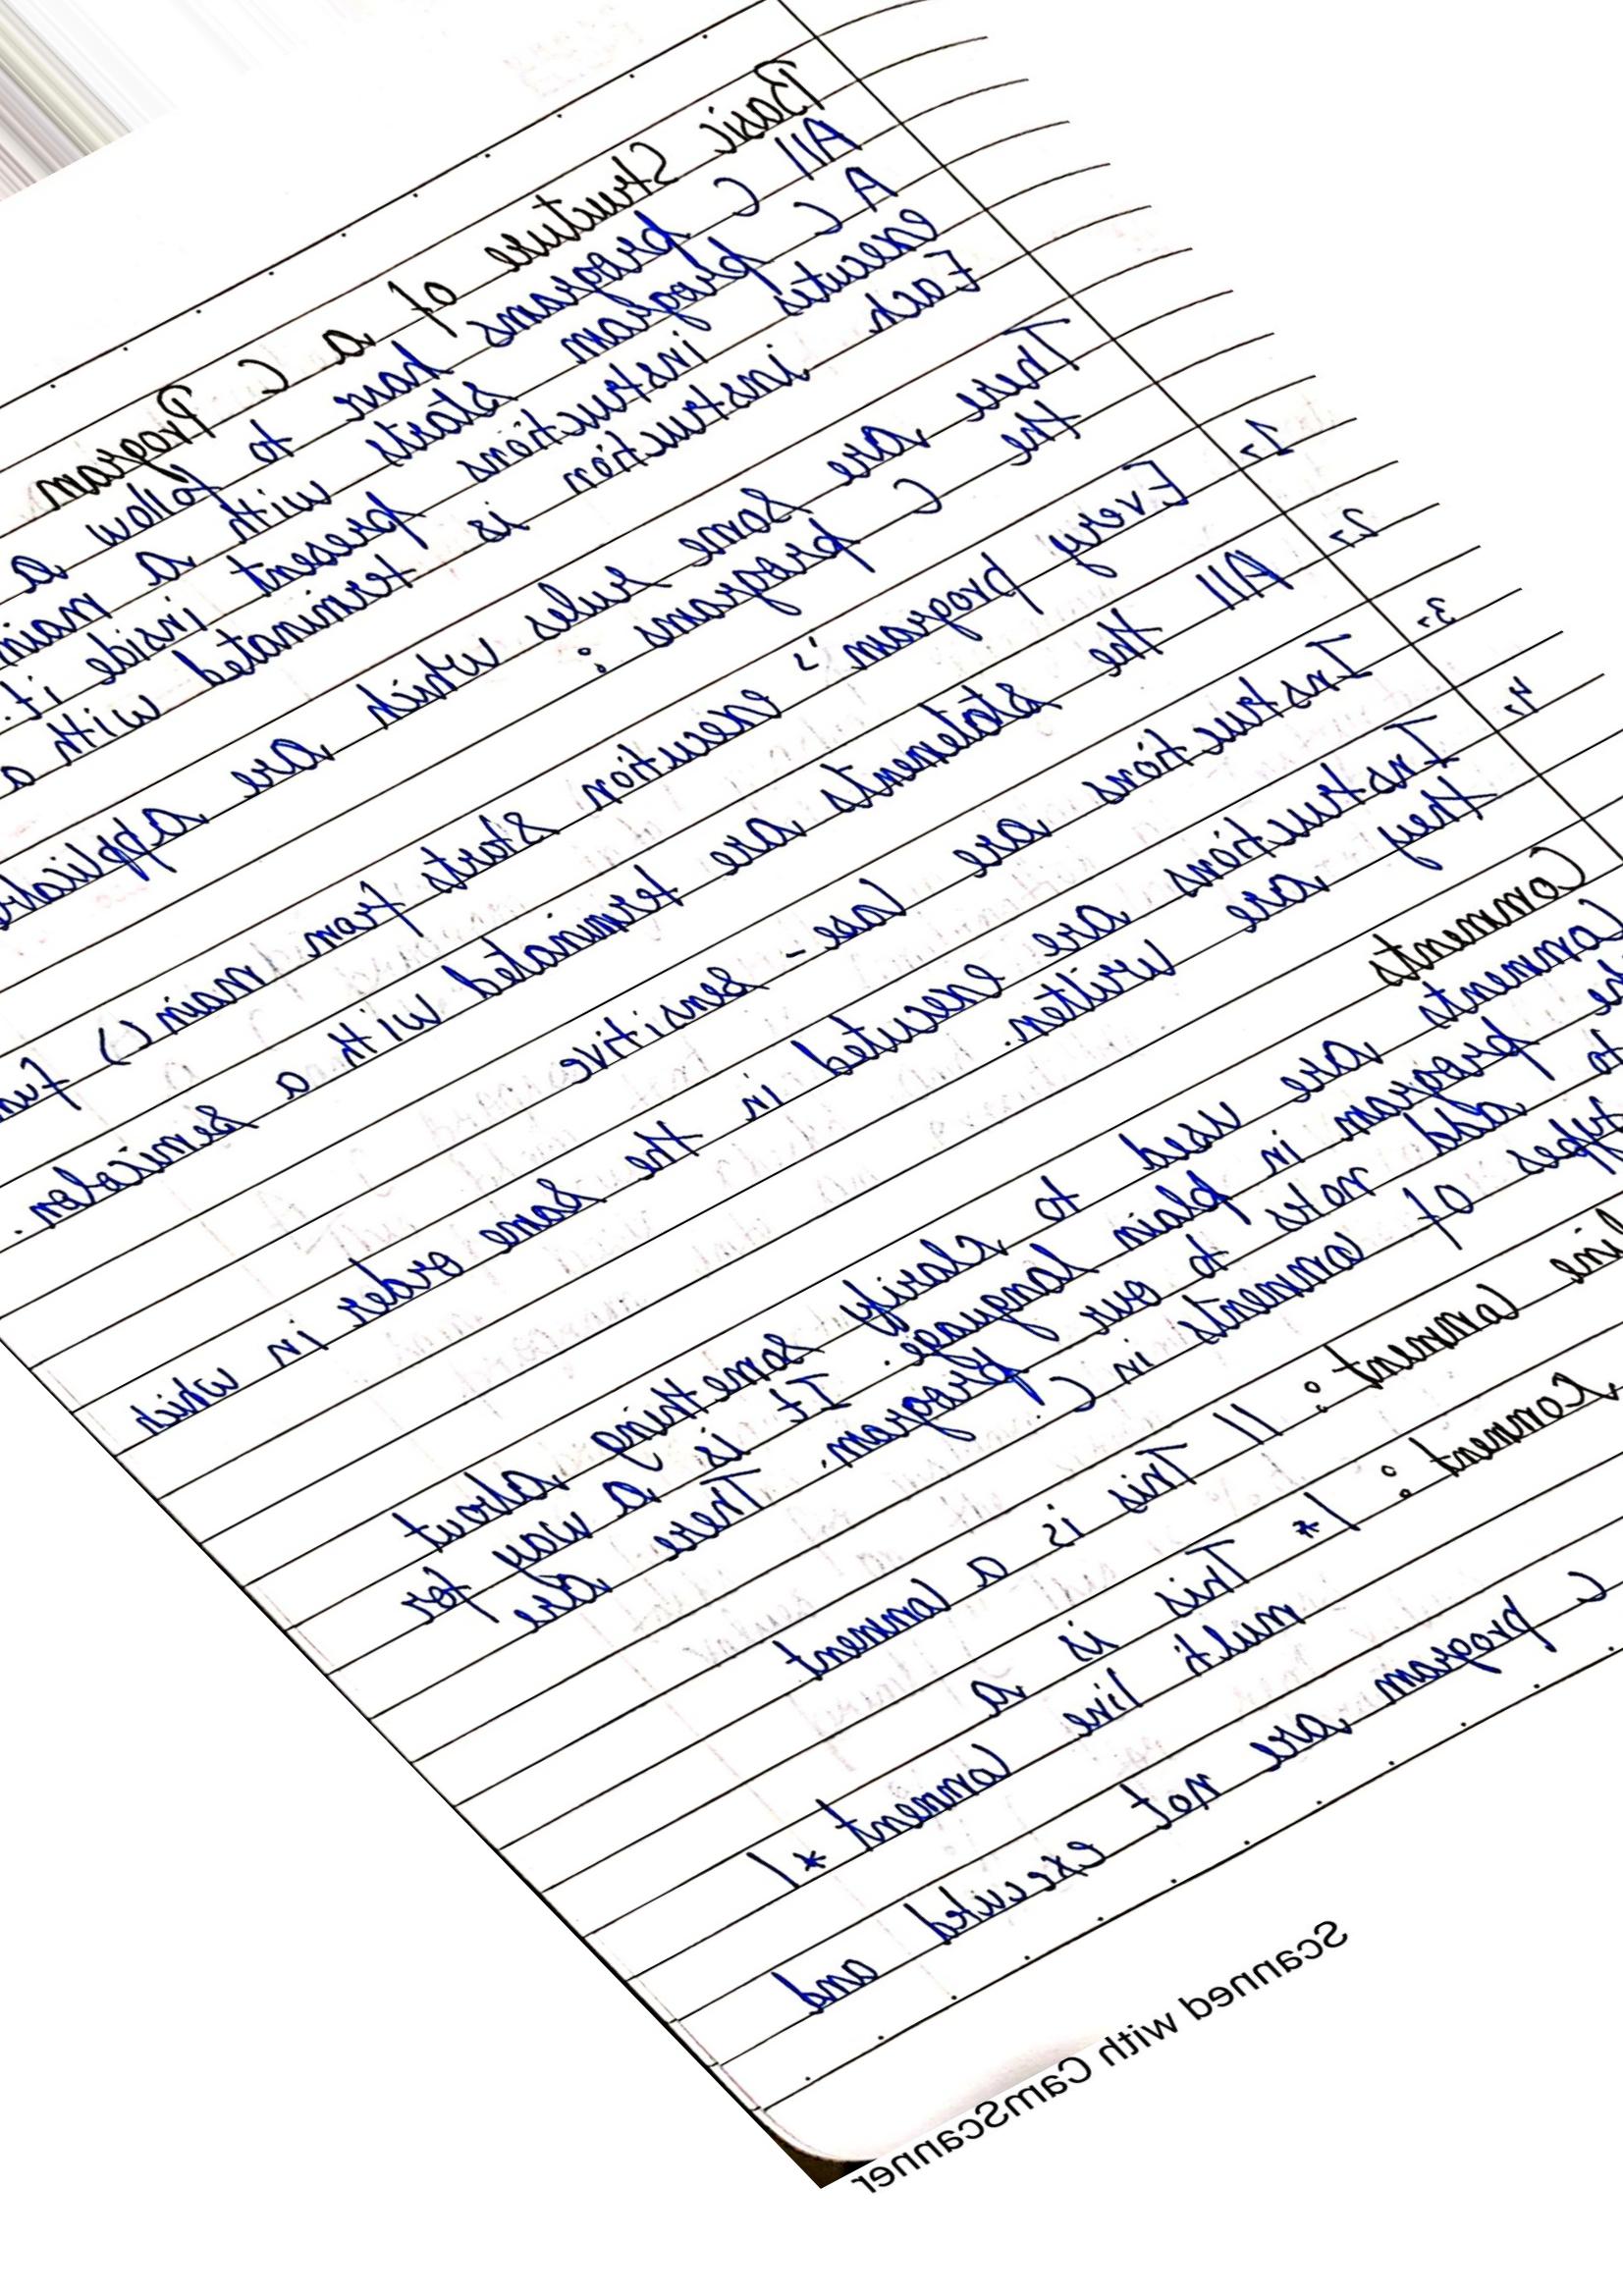 Basic Structure of a C Program
All C programs have to follow a
A C program starts with a main
executes instructions present inside it.
Each instruction is terminated with a
There are some rules which are applicab
the C programs :
1. Every program's execution starts from main() fun
2. All the statements are terminated with a semicolon.
3. Instructions are case-sensitive
4. Instructions are executed in the same order in which
they are written.
Comments
Comments are used to clarify something about
program in plain language. It is a way for
to add notes to our program. There are
types of comments in C.
line comment : // This is a comment
comment : /* This is a
multi line comment */
C program are not executed and
Scanned with CamScanner